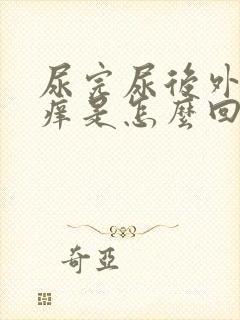 尿完尿後外
痒是怎麼回
奇亞